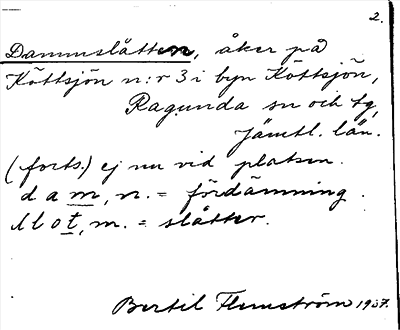 2.
Dammslåtten, åker på
Köttsjön n:r 3 i byn Köttsjön,
Ragunda sn och tg,
Jämtl. län.
(forts.) ej nu vid platsen.
dam, n. = fördämning.
slot, m. = slåtter.
Bertil Flemström 1937.